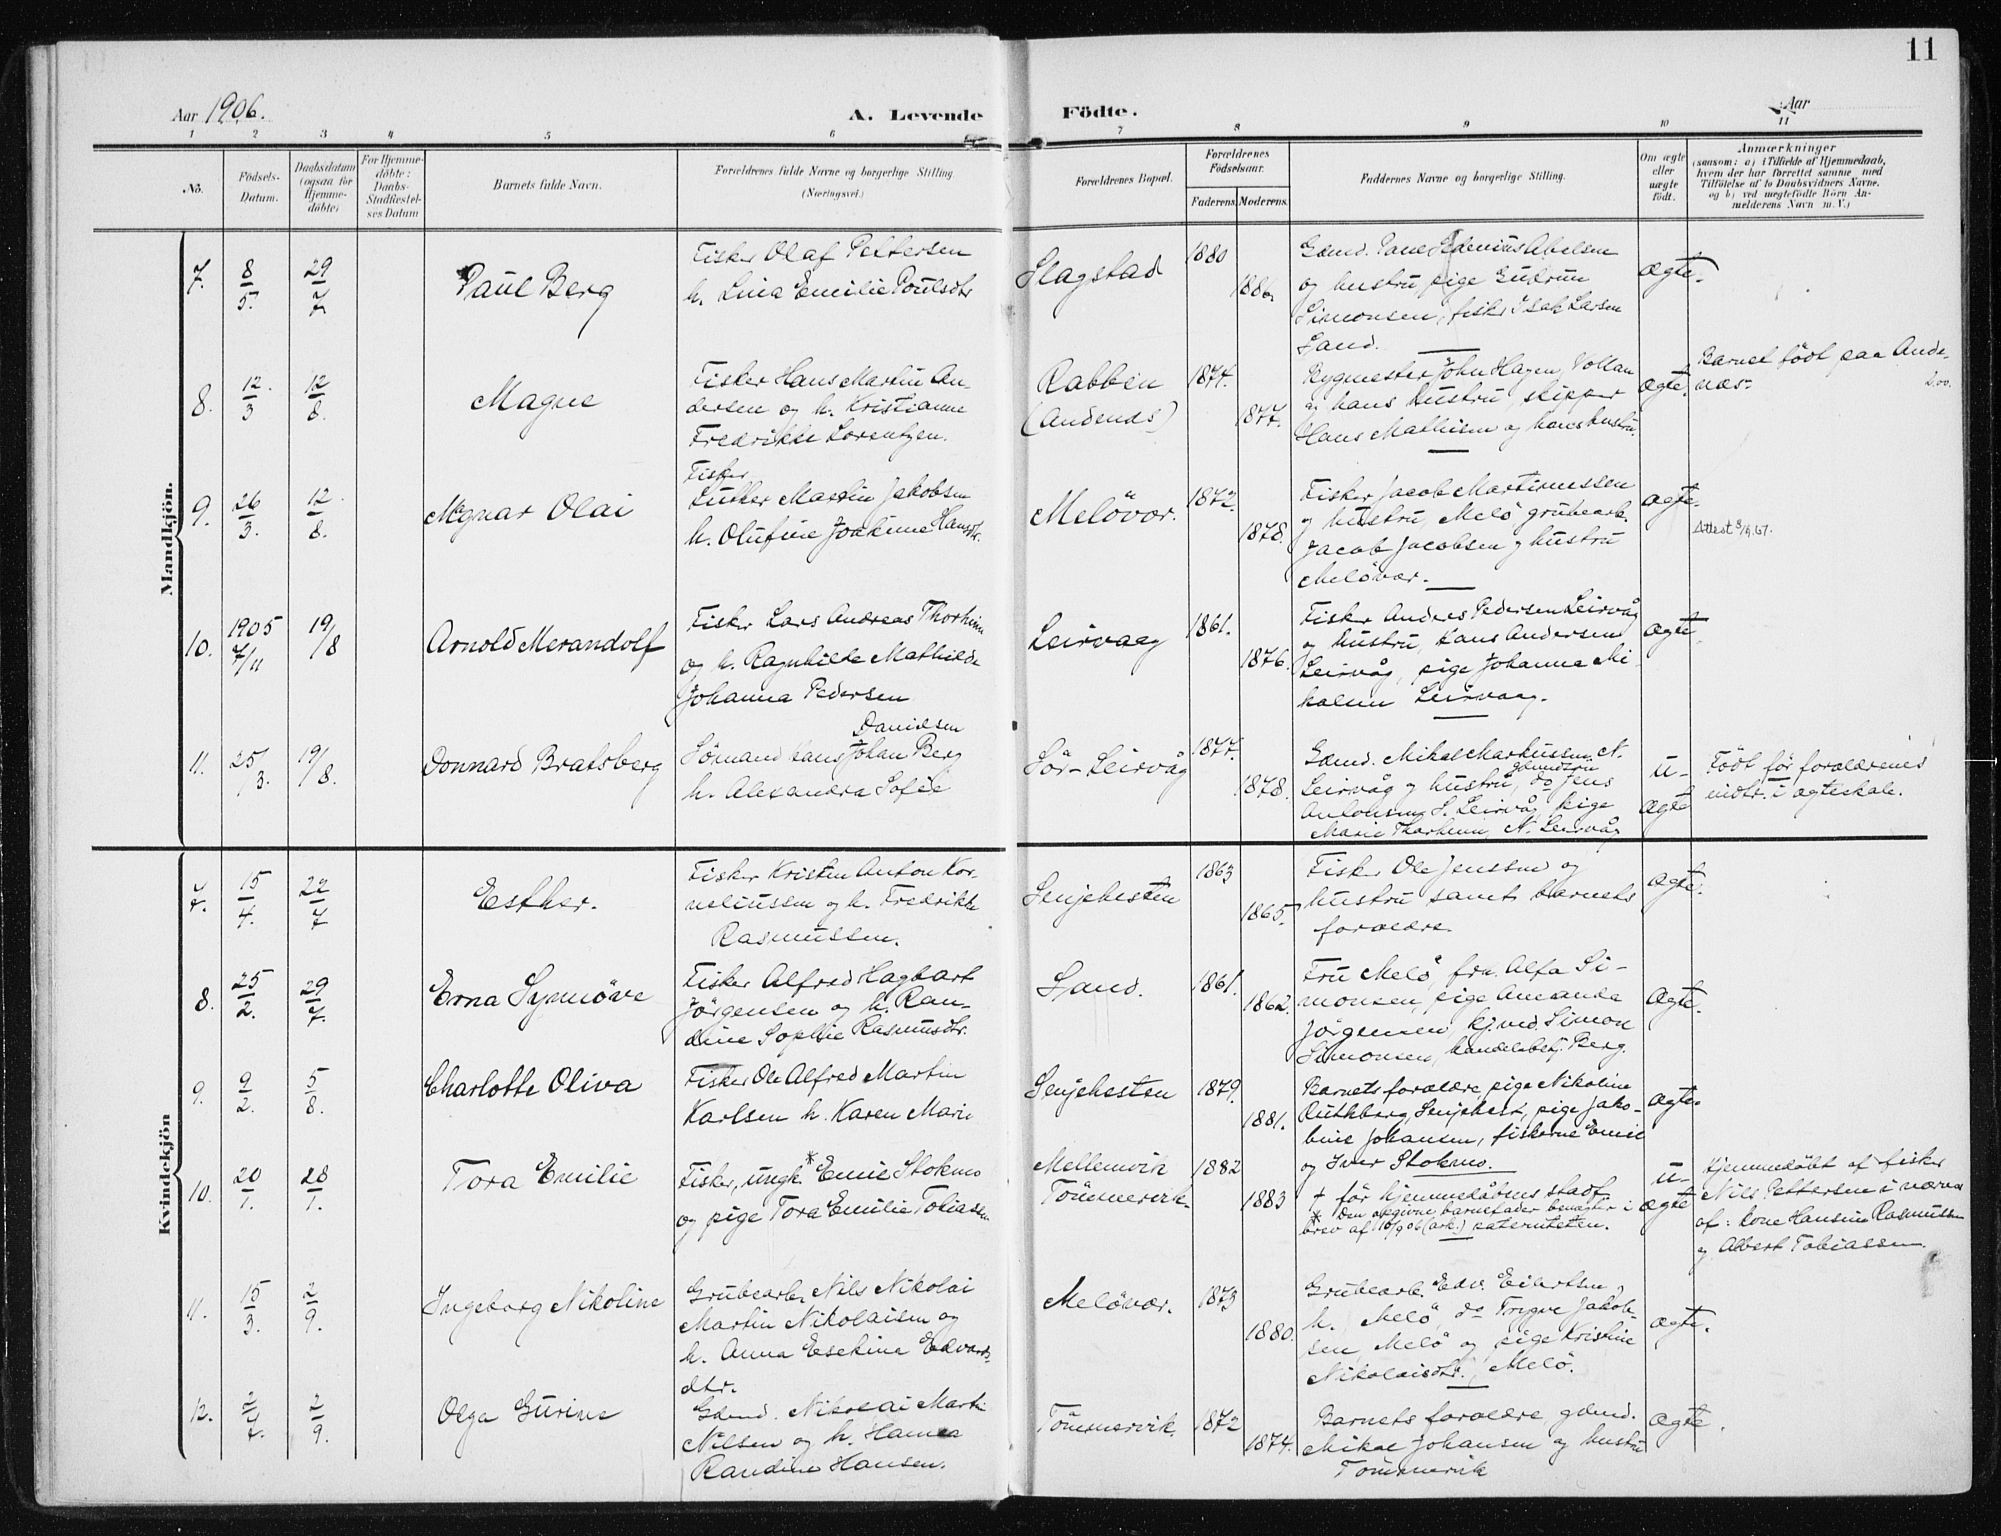 11
Aar 1906.
A. Levende Födte.
Aar
1 2 3 4 5 6 7 8 9 10 11
No.
Födsels-Datum.
Daabsdatum (ogsaa for Hjemme-döbte)
For Hjemme-döbte: Daabs-Stadfæstel-ses Datum
Barnets fulde Navn.
Forældrenes fulde Navne og borgerlige Stilling. (Næringsvei.)
Forældrenes Bopæl.
Forældrenes Födselsaar.
Faderens. Moderens.
Faddernes Navne og borgerlige Stilling.
Om ægte eller uægte födt.
Anmærkninger
(saasom: a) i Tilfælde af Hjemmedaab, hvem der har forrettet samme med Tilföielse af to Daabsvidners Navne, og b) ved uægtefödte Börn An-melderens Navn m. V.)
Mandkjön.
7. 8/5. 29/7 Paul Berg
Fisker Olaf Pettersen
h. Lina Emilie Poulsdtr
Slagstad 1880 1886
Gdmd. Edenius Abelsen
og hustru, pige Gudrun
Simonsen, fisker Isak Larsen
Sand.
ægte.
8. 12/3 12/8. Magne
Fisker Hans Martin An-
dersen og h. Kristianne
Fredrikke Lorentzen.
Rabben
(Andenæs)
1874. 1877.
Bygmester John Hagen, Vollan
og hans hustru, skipper
Hans Mathisen og hans hustru.
ægte.
Barnet födt paa Ande-
næs.
9. 26/3. 12/8. Magnar Olai
Fisker
Luther Martin Jakobsen
h. Olufine Joakime Hansdtr.
Melövær. 1872. 1878.
Fisker Jacob Martinussen
og hustru, Melö, grubearb.
Jacob Jacobsen og hustru
Melövær.
ægte.
Attest 8/9.67.
10. 1905 7/11 19/8 Arnold Merandolf
Fisker Lars Andreas Thorheim
og h. Ragnhilde Mathilde
Johanna Pedersen
Leirvaag 1861. 1876.
Fisker Anders Pedersen Leirvåg
og hustru, Hans Andersen
Leirvåg, pige Johanna Mi-
kalsen Leirvaag.
ægte.
11. 25/3. 19/8. Donnard Bratsberg
Danielsen
Sömand Hans Johan Berg
h. Alexandra Sofie
Sör-Leirvåg 1877. 1878.
Gdmd. Mikal Markussen N.
Leirvåg og hustru, do Jens
Antonsen S. Leirvåg, pige
Marie Thorheim, N. Leirvåg
u-
ægte
Födt før forældrenes
indtr. i ægteskab.
Kvindekjön
7. 15/4. 22/7 Esther.
Fisker Kristen Anton Kor-
neliussen og h. Fredrikke
Rasmussen.
Senjehesten 1863 1865.
Fisker Ole Jenssen og
hustru samt barnets
forældre.
ægte.
8. 25/2. 29/7. Erna Synnöve
Fisker Alfred Hagbart
Jörgensen og h. Ran-
dine Sophie Rasmusdtr.
Sand. 1861. 1862.
Fru Melö, frk. Alfa Si-
monsen, pige Amanda
Jörgensen, kjmd. Simon
Simonsen, handelsbetj. Berg.
ægte.
9. 9/2. 5/8. Charlotte Oliva
Fisker Ole Alfred Martin
Karlsen h. Karen Marie
Senjehesten 1879. 1881.
Barnets forældre, pige Nikoline
Ruthberg, Senjehest, pige Jako-
bine Johansen, fiskerne Emil
og Iver Stokmo.
ægte.
10. 20/1. 28/1. Tora Emilie
Fisker, ungk.* Emil Stokmo
og pige Tora Emilie Tobiasen
Mellemvik
Tömmervik.
1882 1883
† før hjemmedåbens stadf.
* Den opgivne barnefader benegter i
brev af 10/9 06 (ark.) paterniteten.
u-
ægte
Hjemmedöbt af fisker
Nils Pettersen i nærvær
af: kone Hansine Rasmussen
og Albert Tobiassen.
11. 15/3. 2/9. Ingeborg Nikoline
Grubearb. Nils Nikolai
Martin Nikolaisen og
h. Anna Esekine Edvards-
dtr.
Melövær. 1873 1880.
Grubearb. Edv. Eilertsen,
h. Melö, do Trygve Jakob-
sen, Melö og pige Kristine
Nikolaisdtr., Melö.
ægte.
12. 2/7. 2/9. Olga Gurine
Gdmd. Nikolai Martin
Nilsen og h. Hanna
Randine Hansen.
Tömmervik. 1872 1874.
Barnets forældre, gdmd.
Mikal Johansen og hustru
Tömmervik
ægte.